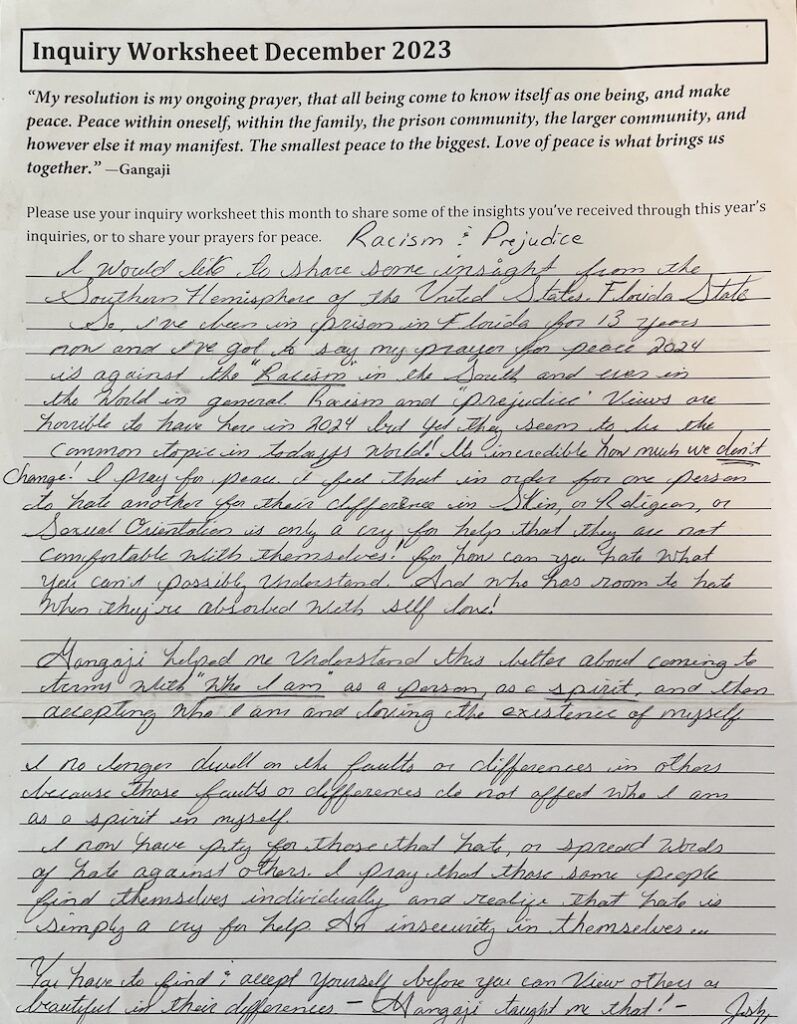 Inquiry Worksheet December 2023
“My resolution is my ongoing prayer, that all being come to know itself as one being, and make
peace. Peace within oneself, within the family, the prison community, the larger community, and
however else it may manifest. The smallest peace to the biggest. Love of peace is what brings us
together.” —Gangaji
Please use your inquiry worksheet this month to share some of the insights you’ve received through this year’s
inquiries, or to share your prayers for peace. Racism & Prejudice
I would like to share some insight from the
Southern Hemisphere of the United States. Florida State
So, I've been in prison in Florida for 13 years
now and I've got to say my prayer for peace 2024
is against the "Racism" in the South and even in
the World in general. Racism and "prejudice' Views are
horrible to have here in 2024 but yet they seem to be the
common topic in todays World! Its incredible how much we don't
Change! I pray for peace. I feel that in order for one person
to hate another for their difference in Skin, or Religion, or
Sexual Orientation is only a cry for help that they are not
comfortable with themselves! For how can you hate what
you can't possibly understand. And who has room to hate
when they're absorbed with self love!
Gangaji helped me Understand this better about coming to
terms with "Who I am" as a person, as a spirit, and then
accepting who I am and loving the existence of myself
I no longer dwell on the faults or differences in others
because those faults or differences do not affect who I am
as a spirit in myself.
I now have pity for those that hate, or spread words
of hate against others. I pray that those same people
find themselves individually and realize that hate is
simply a cry for help An insecurity in themselves...
You have to find & accept yourself before you can View others as
beautiful in their differences — Gangaji taught me that! - Josh,